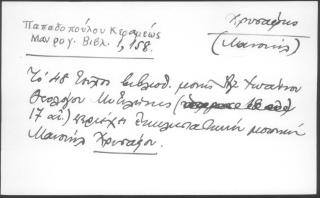 Παπαδοπούλου Κεραμέως
Μαυρογ. Βιβλ. 1, 158.
Χρυσάφης
(Μανουήλ)
Τὸ 48 τεῦχος βιβλιοθ. μονῆς Ἁγ. Ἰωάννου
Θεολόγου Μυτιλήνης (
17 αἰ.) περιέχει ἐκκλησιαστικὴν μουσικὴν
Μανουὴλ Χρυσάφου.